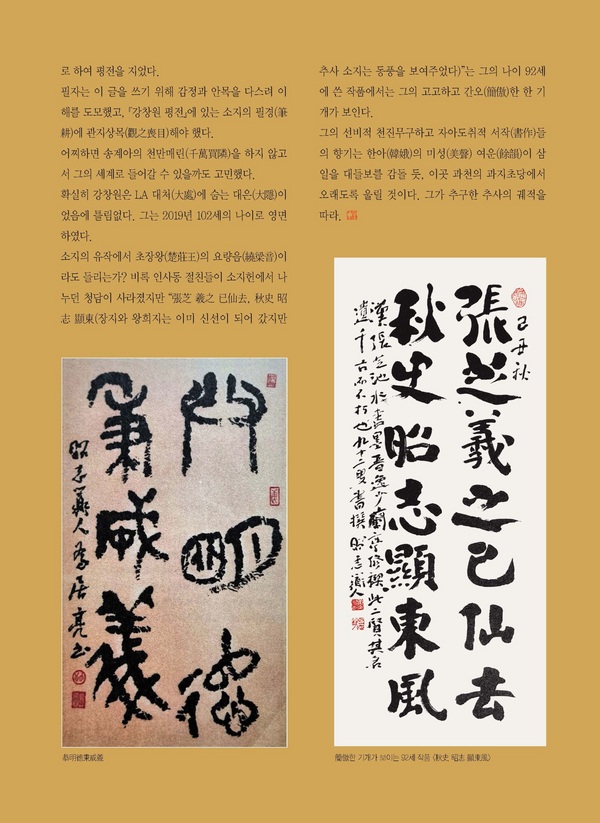 로 하여 평전을 지었다.
필자는 이 글을 쓰기 위해 감정과 안목을 다스려 이
해를 도모했고, 「강창원 평전」에 있는 소지의 필경(筆
耕)에 관지상목(觀之喪目)해야 했다.
어찌하면 송계아의 천만매린(千萬買隣)을 하지 않고
서 그의 세계로 들어갈 수 있을까도 고민했다.
확실히 강창원은 LA 대처(大處)에 숨는 대은(大隱)이
었음에 틀림없다. 그는 2019년 102세의 나이로 영면
하였다.
소지의 유작에서 초장왕(楚莊王)의 요량음(繞梁音)이
라도 들리는가? 비록 인사동 절친들이 소지헌에서 나
누던 청담이 사라졌지만 “張芝 羲之 已仙去, 秋史 昭
志 顯東(장지와 왕희지는 이미 신선이 되어 갔지만
추사 소지는 동풍을 보여주었다)”는 그의 나이 92세
에 쓴 작품에서는 그의 고고하고 간오(簡傲)한 한 기
개가 보인다.
그의 선비적 천진무구하고 자아도취적 서작(書作)들
의 향기는 한아(韓娥)의 미성(美聲) 여운(餘韻)이 삼
일을 대들보를 감돌 듯, 이곳 과천의 과지초당에서
오래도록 울릴 것이다. 그가 추구한 추사의 궤적을
따라.
明德
秉威義
恭明德秉威義
己丑秋
張芝羲之已仙去
秋史昭志顯東風
簡傲한 기개가 보이는 92세 작품 〈秋史 昭志 顯東風〉